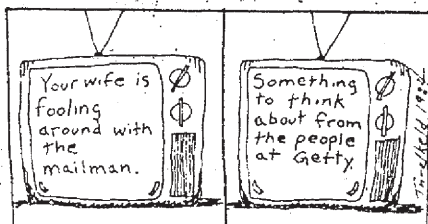 Your wife is
fooling
around with
the
mailman.
Something
to think
about from
the people
at Getty